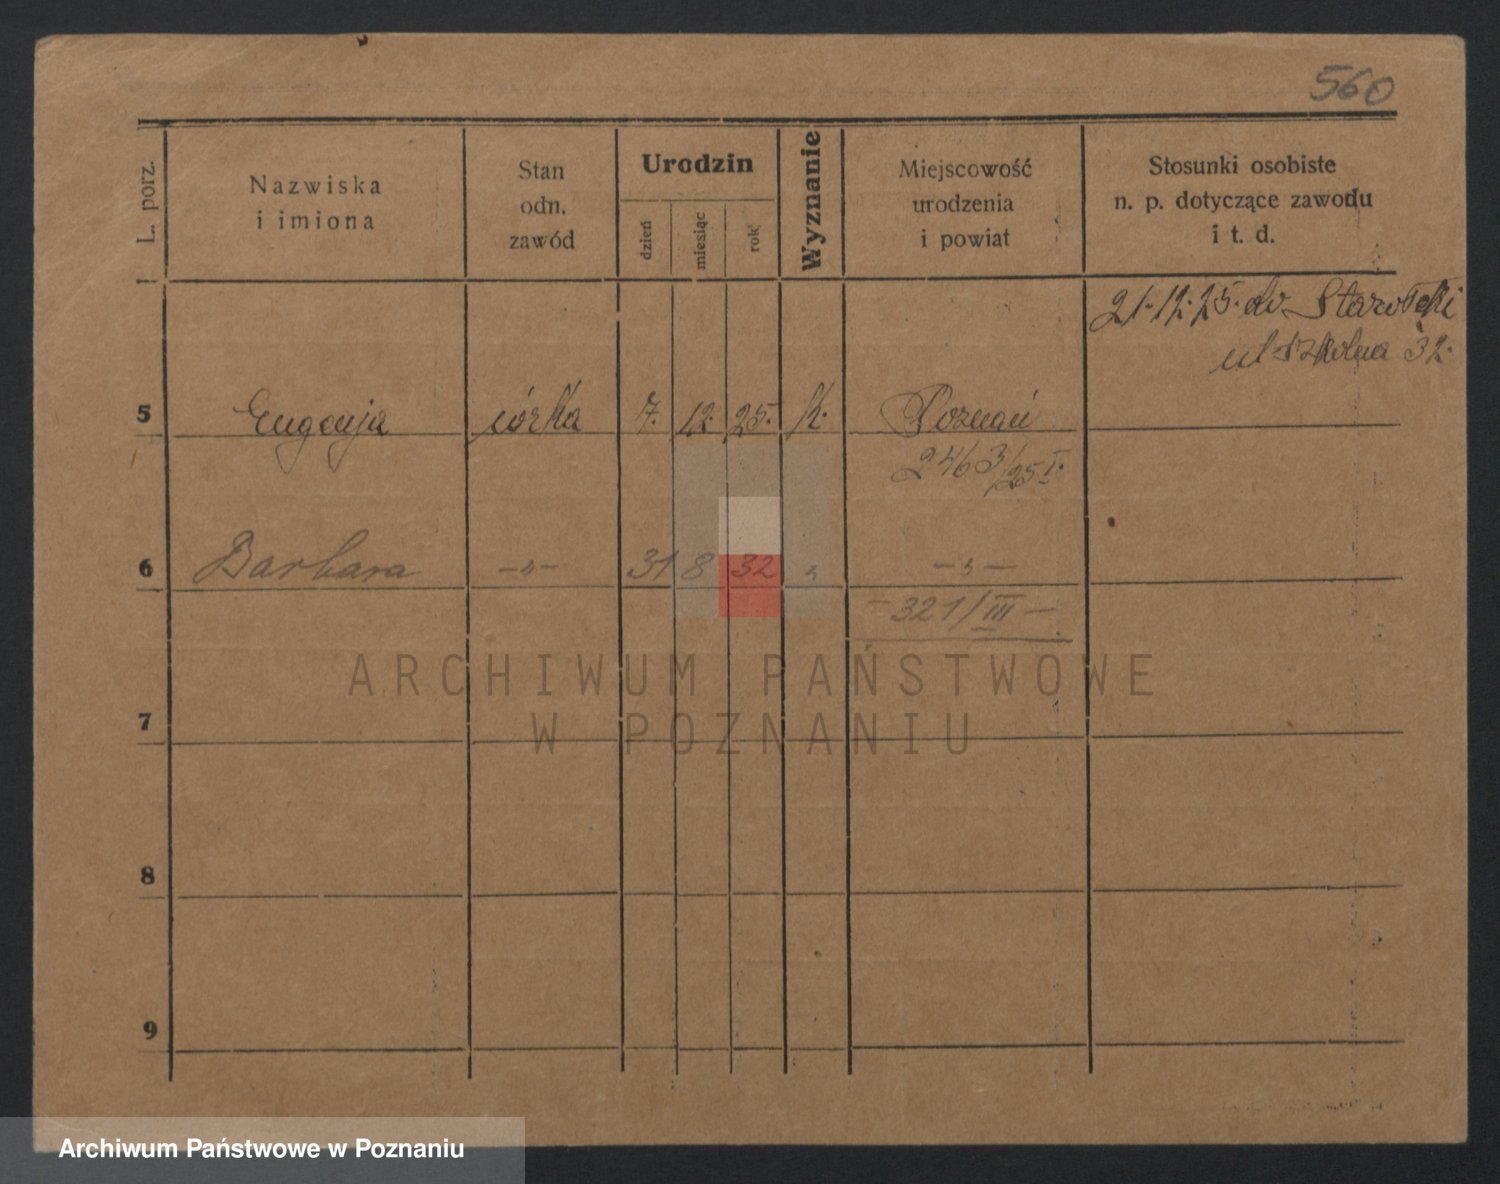 560
L. porz.
Nazwiska
i imiona
Stan
odn.
zawód
Urodzin
dzień
miesiąc
rok
Wyznanie
Miejscowość
urodzenia
i powiat
Stosunki osobiste
n. p. dotyczące zawodu
i t. d.
21.12.25. do Starołęki
ul Szkolna 32.
5 Eugenja córka 7. 12. 25. k. Poznań
2463/25 I.
6 Barbara -"- 31 8 32 " -"-
-321/III-
7
8
9
ARCHIWUM PAŃSTWOWE
W POZNANIU
Archiwum Państwowe w Poznaniu